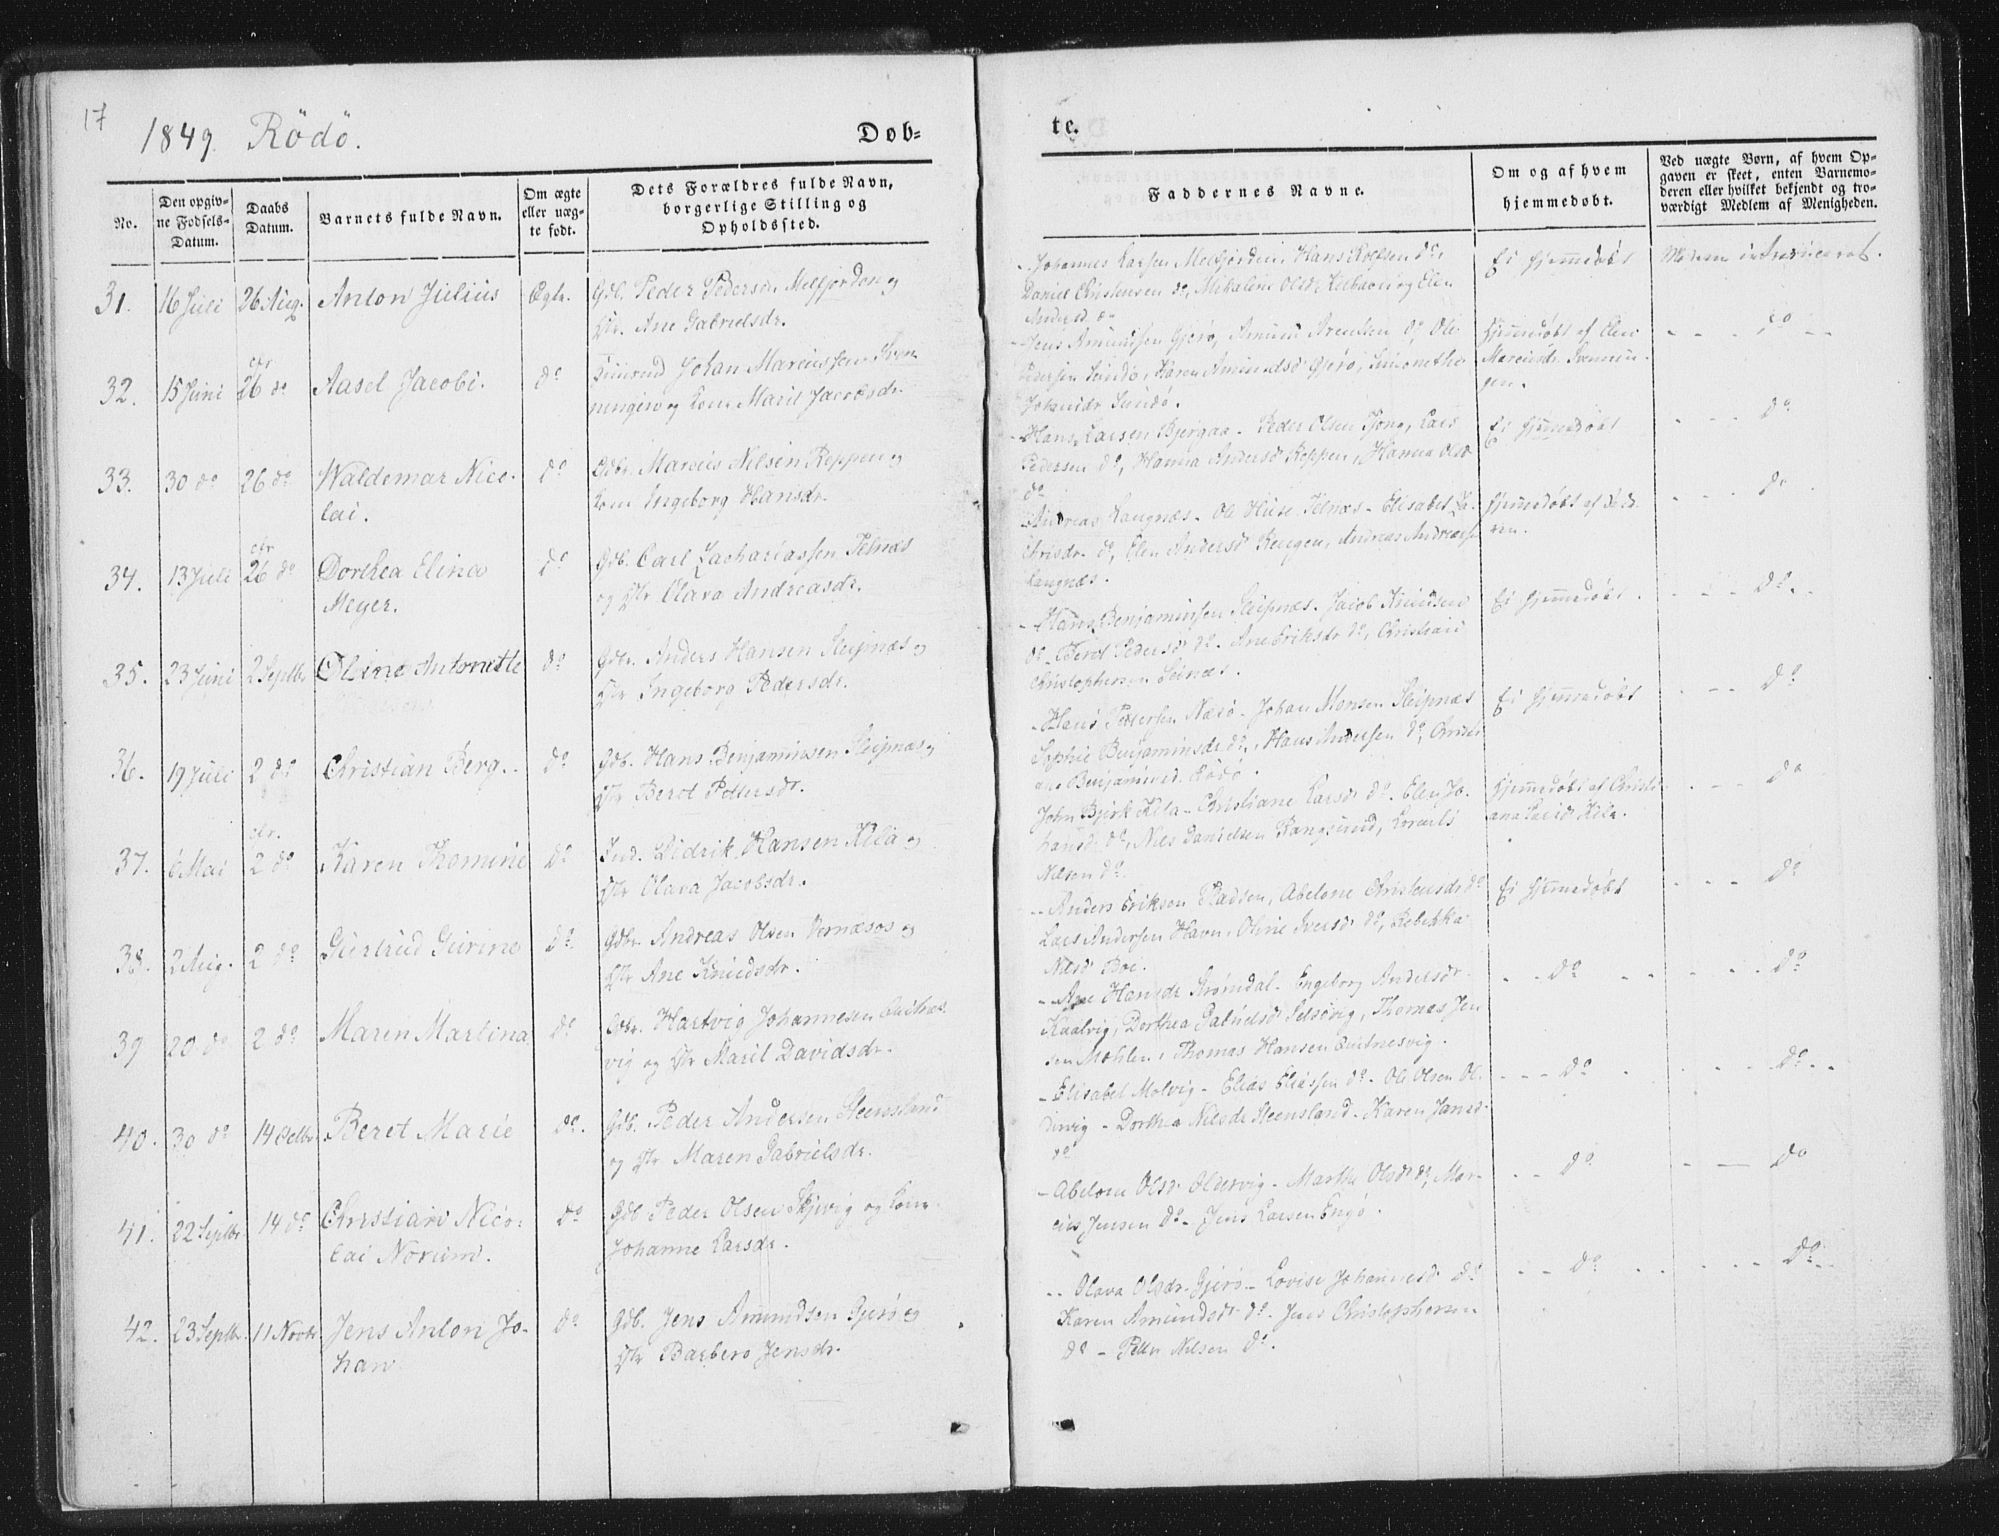 17
1849. Rödö.
Dob=
te.
No.
Den opgiv-
ne Fødsels-
Datum.
Daabs
Datum.
Barnets fulde Navn.
Om ægte
eller uæg-
te født.
Dets Forældres fulde Navn,
borgerlige Stilling og
Opholdssted.
Faddernes Navne.
Om og af hvem
hjemmedøbt.
Ved uægte Børn, af hvem Op-
gaven er skeet, enten Barnemo-
deren eller hvilket bekjendt og tro-
værdigt Medlem af Menigheden.
31. 16 Juli 26 Aug. Anton Julius Ægte. Gdb. Peder Pedersen Melfjorden og
Hr. Ane Gabrielsdr.
Johannes Larsen Melfjorden, Hans do,
Daniel Christensen do, Mikaline Olsdr og Elen
Andersd.
Ei hjemmedøbt
Modern introduceret.
32. 15 Juni 26 do Aasel Jacobi. do Johan Marcussen
og Kone Marit Jacobsdr.
- Jens Amundsen Gjerö, Amund Arentsen do, Ole
Pedersen Sundö, Karen Amundsd Gjerö, Simonethe
Johansdr Sundö.
Hjemmedøbt af Elen
Marcusdr
do
33. 30 do 26 do Waldemar Nico-
lai.
do Gdbr. Marcus Nilsen Reppen og
Kone Ingeborg Hansdr.
- Hans Larsen Bjergaa - Peder Olsen Tjong, Lars
Pedersen do, Hanna Andersd Reppen, Hanna Olsd
do
Ei hjemmedøbt
do
34. 13 Juli 26 do Dorthea Elina
Meyer.
do Gdb. Carl Zachariassen Selnæs
og Hr Olava Andreasdr.
Andreas Langnæs - Ole Huse Selnæs - Elisabet Za-
chrisdr do, Elen Andersd Rengen, Andreas Andreassen
Langnæs.
Hjemmedøbt af
do
35. 23 Juni 2 Septbr Oline Antonette do Gdbr. Anders Hansen Sleipnæs og
Hr Ingeborg Pedersdr.
- Hans Benjaminsen Sleipnæs. Jacob Knudsen
do - Beret Pedersd do - Ane Eriksdr do, Christian
Christophersen Selnæs.
Ei hjemmedøbt.
do
36. 19 Juli 2 do Christian Berg. do Gdb. Hans Benjaminsen Sleipnæs og
Hr Beret Pettersdr.
- Hans Pettersen Næsö - Johan Monsen Sleipnæs
Sophie Benjaminsdr do, Hans Andersen do,
Benjaminsd. Rödö.
Ei hjemmedøbt
do
37. 6 Mai 2 do Karen Thomine do Ind. Didrik Hansen Kila og
Hr Olava Jacobsdr.
John Bjerk Kila - Christiane Larsd do. Elen Jo-
hansd do, Niels Danielsen Rangsund,
Nilsen do
Hjemmedøbt af Christi-
ana Larsd Kila.
do
38. 2 Aug. 2 do Gjertrud Gurine do. Gdbr. Andreas Olsen Værnæsos og
Hr Ane Knudsdr.
- Anders Eriksen Stadsen, Abelone Christensdr do
Lars Andersen Havn, Oline Iversd do, Rebekka
Nilsd Boe.
Ei hjemmedøbt
do
39 20 do 2 do Maren Martina do Gdbr. Hartvig Johannesen
vig og Hr Marit Davidsdr.
- Ane Hansdr Strömdal - Engeborg Andersdr
Kaalvig, Dorthea Gabrielsd Selsövig, Thomas Jen
sen Mohlen, Thomas Hansen
do
do
40. 30 do 14 Octbr. Beret Marie do. Gdb. Peder Andersen Steensland
og Hr Maren Gabrielsdr.
- Elisabet Molvig - Elias Eliassen do - Ole Olsen Ol-
dervig - Dorthea Nilsdr Steensland - Karen Jansd.
do
do
do
41. 22 Septbr. 14 do Christian Nico-
lai Norum.
do Gdb Peder Olsen Skjevig og Kone
Johanne Larsdr.
- Abelone Olsd Oldervig - Marthe Olsdr do, Mar-
cus Jensen do - Jens Larsen Engö.
do
do
42. 23 Septbr. 11 Novbr Jens Anton Jo-
han
do Gdb. Jens Amundsen Gjerö og
Hr Barbero Jensdr.
- Olava Olsdr Gjerö - Lovise Johannesd do
Karen Amundsdr do. Jens Christophersen
do - Peder Nilsen do.
do
do